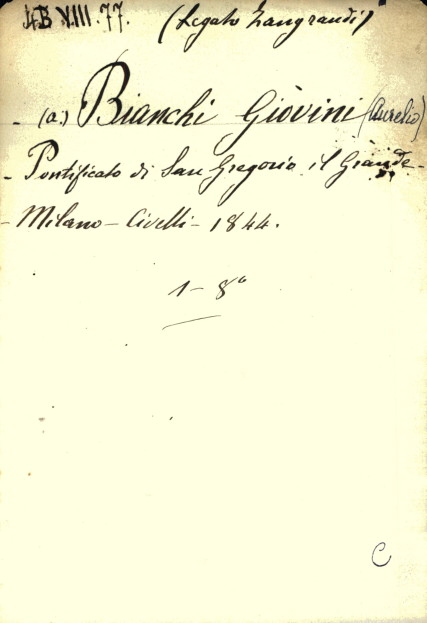 4B VIII.77. (Legato Zangrandi)
- (a.) Bianchi Giovini (Aurelio)
- Pontificato di San Gregorio il Grande -
- Milano - Civelli - 1844.
1 - 8°
C